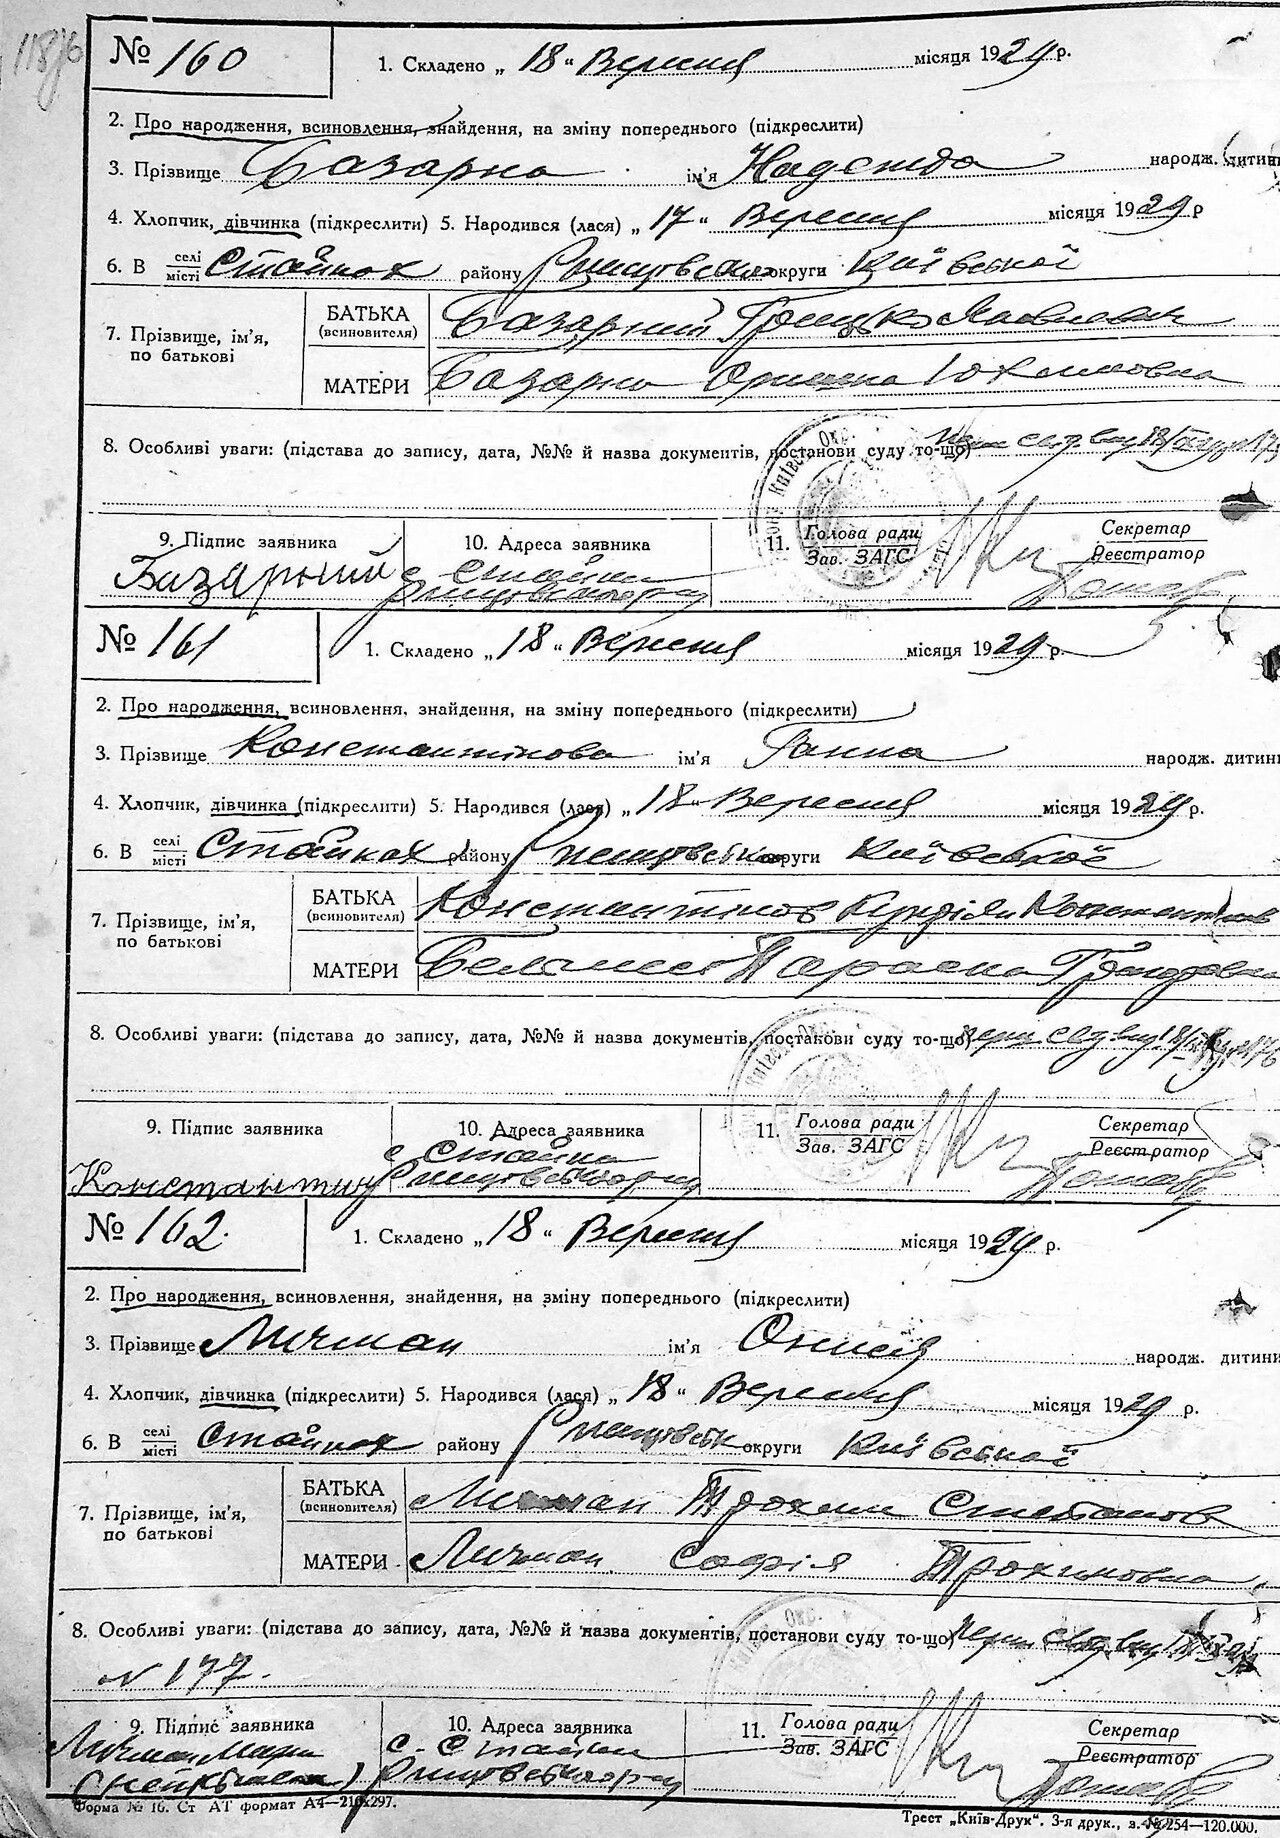 118/6
№ 160
1. Складено „ 18 “ Вересня місяця 1929 р.
2. Про народження, всиновлення, знайдення, на зміну попереднього (підкреслити)
3. Прізвище Базарна ім'я Надежда народж. дитини
4. Хлопчик, дівчинка (підкреслити) 5. Народився (лася) „ 17 “ Вересня місяця 1929 р
6. В селі місті Стайках району Ржищівськ округи Київської
7. Прізвище, ім'я, по батькові
БАТЬКА (всиновителя) Базарний Грицько Яковлевич
МАТЕРИ Базарна Оришка Юхимовна
8. Особливі уваги: (підстава до запису, дата, №№ й назва документів, постанови суду то-що)
9. Підпис заявника
Базарний
10. Адреса заявника
с Стайки
11. Голова ради
Зав. ЗАГС
Секретар
Реєстратор
№ 161
1. Складено „ 18 “ Вересня місяця 1929 р.
2. Про народження, всиновлення, знайдення, на зміну попереднього (підкреслити)
3. Прізвище Константінова ім'я Ганна народж. дитини
4. Хлопчик, дівчинка (підкреслити) 5. Народився (лася) „ 18 “ Вересня місяця 1929 р.
6. В селі місті Стайках району Ржищівськ округи Київської
7. Прізвище, ім'я, по батькові
БАТЬКА (всиновителя) Константінов
МАТЕРИ Параска
8. Особливі уваги: (підстава до запису, дата, №№ й назва документів, постанови суду то-що)
9. Підпис заявника
Константин
10. Адреса заявника
с Стайки
11. Голова ради
Зав. ЗАГС
Секретар
Реєстратор
№ 162.
1. Складено „ 18 “ Вересня місяця 1929 р.
2. Про народження, всиновлення, знайдення, на зміну попереднього (підкреслити)
3. Прізвище Личман ім'я Онися народж. дитини
4. Хлопчик, дівчинка (підкреслити) 5. Народився (лася) „ 18 “ Вересня місяця 1929 р.
6. В селі місті Стайках району Ржищівськ округи Київської
7. Прізвище, ім'я, по батькові
БАТЬКА (всиновителя) Личман Трохим Степанов
МАТЕРИ Личман Софія Трохимовна
8. Особливі уваги: (підстава до запису, дата, №№ й назва документів, постанови суду то-що)
N 177.
9. Підпис заявника
Личман
10. Адреса заявника
с. Стайки
11. Голова ради
Зав. ЗАГС
Секретар
Реєстратор
Форма № 16. Ст АТ формат А4—210х297.
Трест „Київ-Друк“. 3-я друк., з. № 254—120.000.